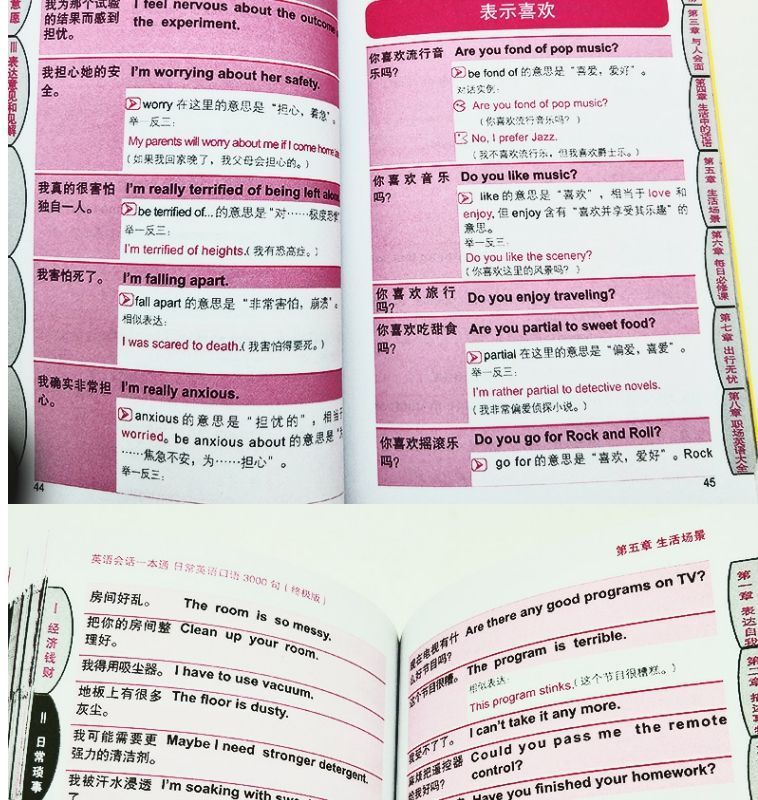 意愿
Ⅲ 表达意见和见解
我为那个试验 I feel nervous about the outcome
的结果而感到 the experiment.
担忧。
我担心她的安 I'm worrying about her safety.
全。
worry 在这里的意思是“担心，着急”。
举一反三：
My parents will worry about me if I come home
(如果我回家晚了，我父母会担心的。)
我真的很害怕 I'm really terrified of being left alone
独自一人。
be terrified of... 的意思是“对……极度恐惧
举一反三：
I'm terrified of heights.(我有恐高症。)
我害怕死了。 I'm falling apart.
fall apart 的意思是“非常害怕，崩溃”。
相似表达：
I was scared to death.(我害怕得要死。)
我确实非常担 I'm really anxious.
心。
anxious 的意思是“担忧的”，相当于
worried。be anxious about 的意思是“为
……焦急不安，为……担心”。
举一反三：
44
表示喜欢
你喜欢流行音 Are you fond of pop music?
乐吗？
be fond of 的意思是“喜爱，爱好”。
对话实例：
Are you fond of pop music?
(你喜欢流行音乐吗？)
No, I prefer Jazz.
(我不喜欢流行乐，但我喜欢爵士乐。)
你喜欢音乐 Do you like music?
吗？
like 的意思是“喜欢”，相当于 love 和
enjoy, 但 enjoy 含有“喜欢并享受其乐趣”的
意思。
举一反三：
Do you like the scenery?
(你喜欢这里的风景吗？)
你喜欢旅行 Do you enjoy traveling?
吗？
你喜欢吃甜食 Are you partial to sweet food?
吗？
partial 在这里的意思是“偏爱，喜爱”。
举一反三：
I'm rather partial to detective novels.
(我非常偏爱侦探小说。)
你喜欢摇滚乐 Do you go for Rock and Roll?
吗？
go for 的意思是“喜欢，爱好”。Rock
45
第三章 与人会面
第四章 生活中的话语
第五章 生活场景
第六章 每日必修课
第七章 出行无忧
第八章 职场英语大全
英语会话一本通 日常英语口语 3000 句（终极版）
Ⅰ 经济钱财
Ⅱ 日常琐事
房间好乱。 The room is so messy.
把你的房间整 Clean up your room.
理好。
我得用吸尘器。 I have to use vacuum.
地板上有很多 The floor is dusty.
灰尘。
我可能需要更 Maybe I need stronger detergent.
强力的清洁剂。
我被汗水浸透 I'm soaking with
了
第五章 生活场景
现在电视有什 Are there any good programs on TV?
么好节目吗？
这个节目很糟。 The program is terrible.
相似表达：
This program stinks.(这个节目很糟糕。)
我受不了了。 I can't take it any more.
麻烦把遥控器 Could you pass me the remote
给我好吗？ control?
Have you finished your homework?
第一章 表达自我